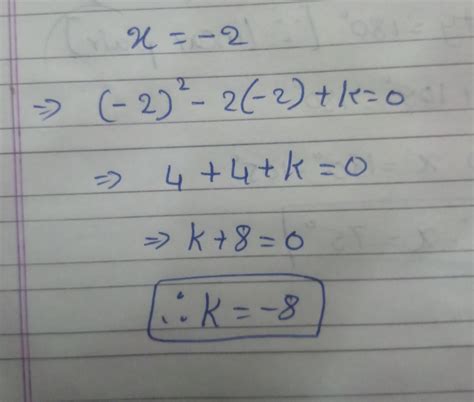 x = -2
⇒ (-2)² - 2(-2) + k = 0
⇒ 4 + 4 + k = 0
⇒ k + 8 = 0
∴ k = -8